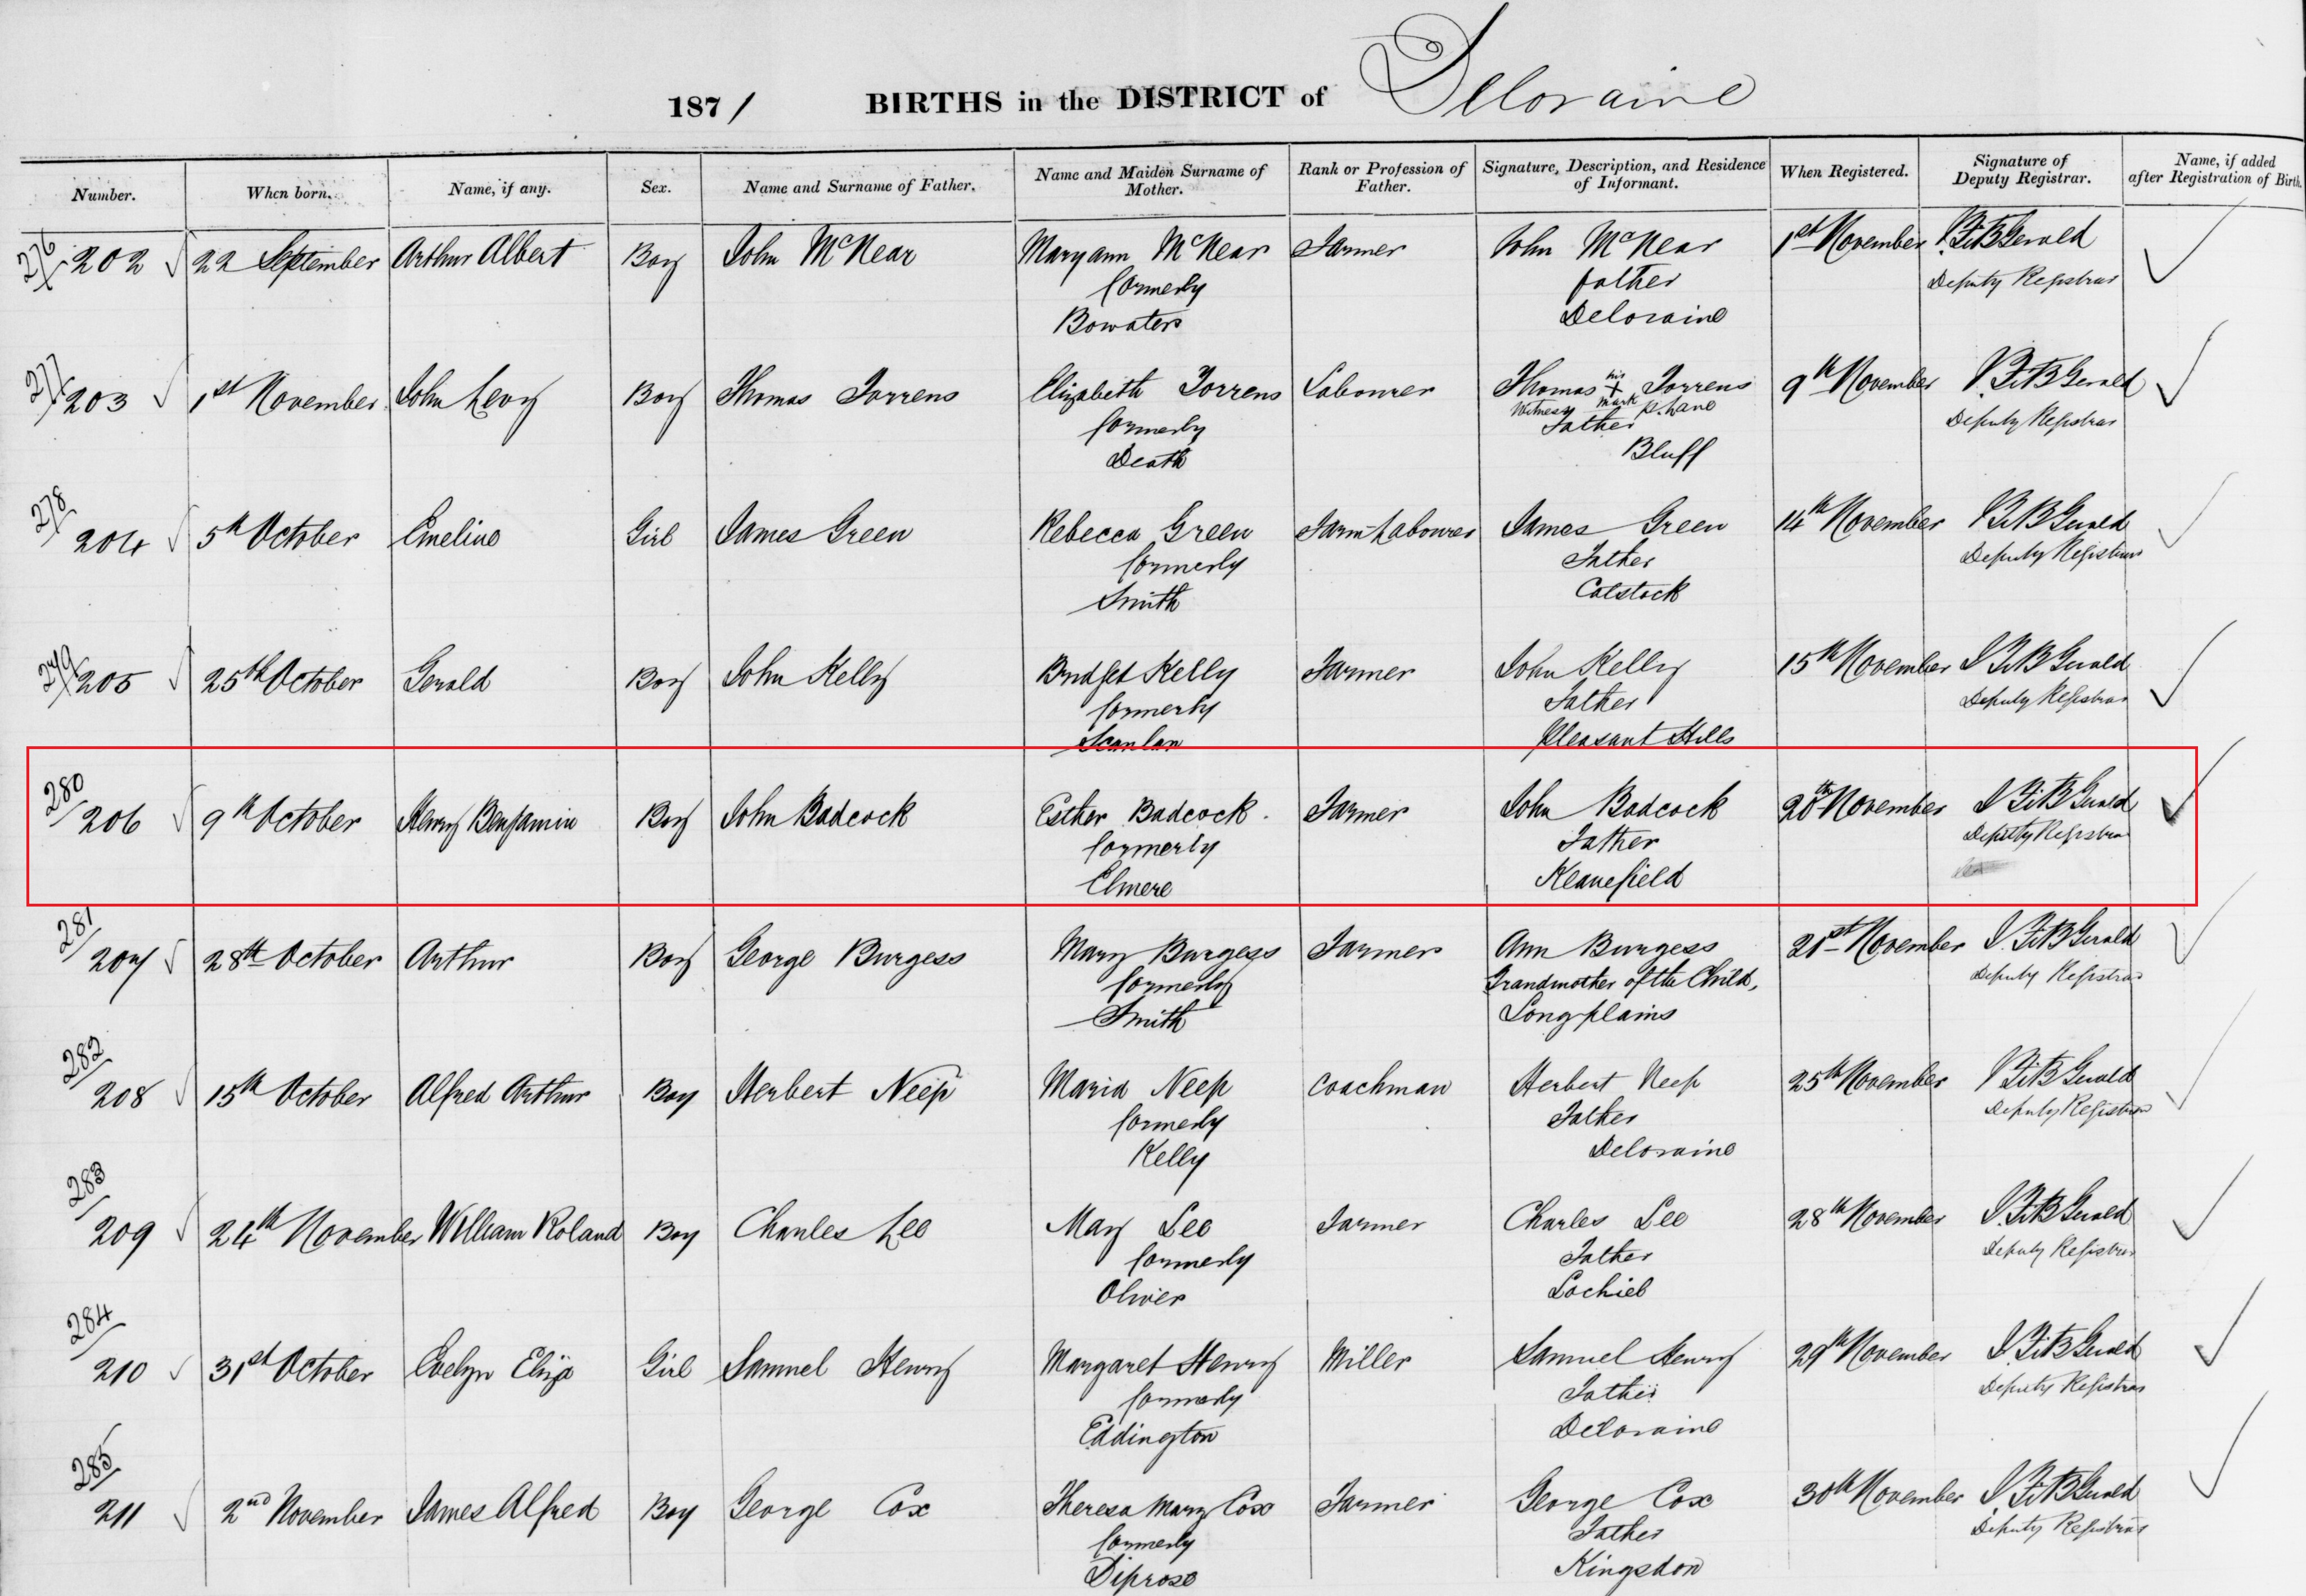 1871 BIRTHS in the DISTRICT of Deloraine
Number. When born. Name, if any. Sex. Name and Surname of Father. Name and Maiden Surname of Mother. Rank or Profession of Father. Signature, Description, and Residence of Informant. When Registered. Signature of Deputy Registrar. Name, if added after Registration of Birth.
276/ 202 22 September Arthur Albert Boy John McNear Maryann McNear Farmer John McNear 1st November FitzGerald
formerly father Deputy Registrar
Bowater Deloraine
277/ 203 1st November John Levy Boy Thomas Torrens Elizabeth Torrens Labourer Thomas his X mark Torrens 9th November FitzGerald
Witness P. Lane
formerly Father Deputy Registrar
Death Bluff
278/ 204 5th October Emeline Girl James Green Rebecca Green Farm Labourer James Green 14th November FitzGerald
formerly Father Deputy Registrar
Smith Calstock
279/ 205 25th October Gerald Boy John Kelly Bridget Kelly Farmer John Kelly 15th November FitzGerald
formerly Father Deputy Registrar
Scanlan Pleasant Hills
280/ 206 9th October Henry Benjamin Boy John Badcock Esther Badcock Farmer John Badcock 20th November FitzGerald
formerly Father Deputy Registrar
Elmere Keanefield
281/ 207 28th October Arthur Boy George Burgess Mary Burgess Farmer Ann Burgess 21st November FitzGerald
formerly Grandmother of the Child, Deputy Registrar
Smith Longplains
282/ 208 15th October Alfred Arthur Boy Herbert Neep Maria Neep Coachman Herbert Neep 25th November FitzGerald
formerly Father Deputy Registrar
Kelly Deloraine
283/ 209 24th November William Roland Boy Charles Lee Mary Lee Farmer Charles Lee 28th November FitzGerald
formerly Father Deputy Registrar
Oliver Lochiel
284/ 210 31st October Evelyn Eliza Girl Samuel Henry Margaret Henry Miller Samuel Henry 29th November FitzGerald
formerly Father Deputy Registrar
Eddington Deloraine
285/ 211 2nd November James Alfred Boy George Cox Theresa Mary Cox Farmer George Cox 30th November FitzGerald
formerly Father Deputy Registrar
Diprose Kingsdon